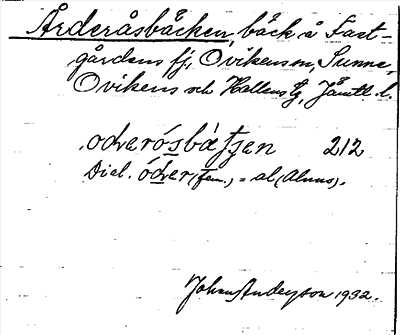 Årderåsbäcken, bäck å Fast-
gårdens fj, Ovikens sn, Sunne,
Ovikens och Hallens tg, Jämtl. l.
odverósbætjen 212
Dial. óđver (fem.) = al (Alnus).
Johan Anderson 1932.